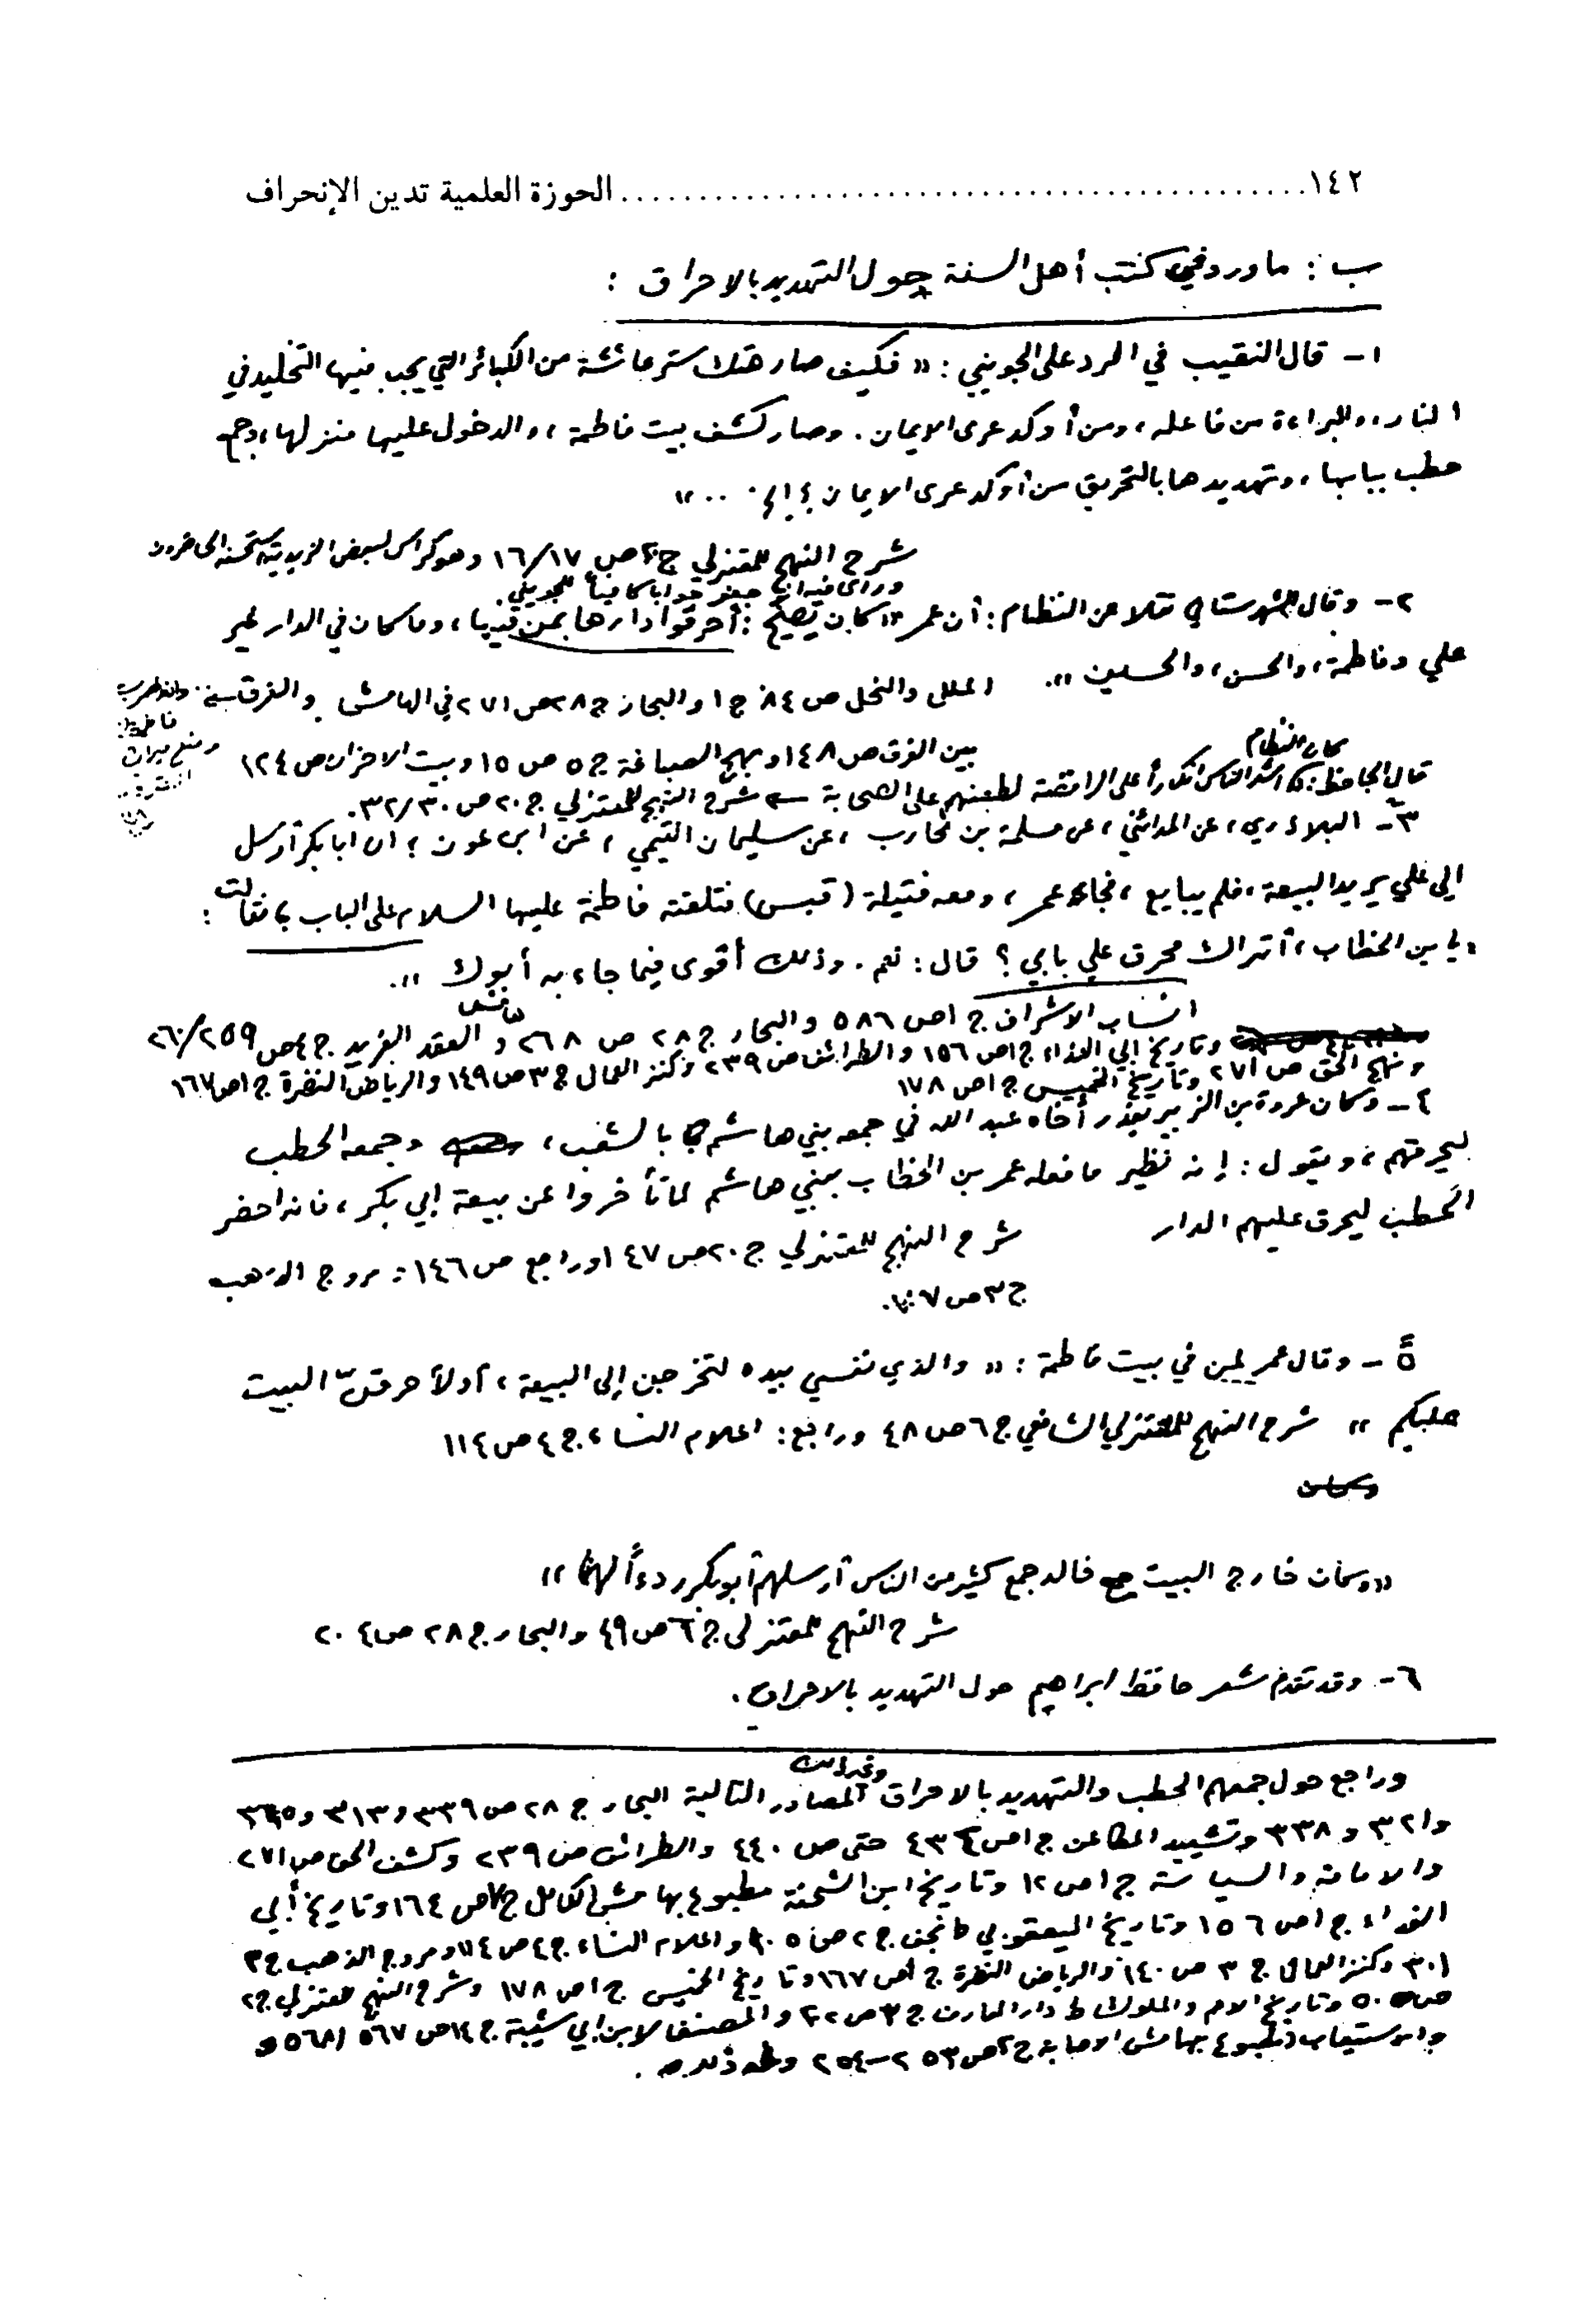 ١٤٢ ........................ الحوزة العلمية تدين الإنحراف
ب : ما ورد في كتب أهل السنة حول التهديد بالاحراق :
١ - قال النقيب في الرد على الجويني : « فكيف صار هتك ستر عائشة من الكبائر التي يجب فيها التخليد في
النار ، والبراءة من فاعله ، ومن أوكد عرى الايمان . وصار كشف بيت فاطمة ، والدخول عليها منزلها ، وجمع
حطب ببابها ، وتهديدها بالتحريق من أوكد عرى الايمان ؟ إلخ . . . »
شرح النهج للمعتزلي ج٢٠ ص ١٦/١٧ وهو كراس لبعض الزيدية
٢ - وقال الشهرستاني نقلا عن النظام : أن عمر « كان يصيح : أحرقوا دارها بمن فيها ، وما كان في الدار غير
علي وفاطمة ، والحسن ، والحسين » . الملل والنحل ص ٨٤ ج ١ والبحار ج ٢٨ ص ٢٧١ في الهامش والفرق
بين الفرق ص ١٤٨ وبهج الصباغة ج ٥ ص ١٥ وبيت الاحزان ص ١٢٤
كان النظام
قال الجاحظ : اشد الناس انكاراً على الرافضة لطعنهم على الصحابة ← شرح النهج للمعتزلي ج ٢٠ ص ٣٢/٣٠ .
٣ - البلاذري ، عن المدائني ، عن مسلمة بن محارب ، عن سليمان التيمي ، عن ابن عون ؛ ان ابا بكر أرسل
الى علي يريد البيعة ، فلم يبايع ، فجاء عمر ، ومعه فتيلة ( قبس ) فتلقته فاطمة عليها السلام على الباب ، فقالت :
يا بن الخطاب ، أتراك محرق علي بابي ؟ قال : نعم . وذلك أقوى فيما جاء به أبوك » .
انساب الاشراف ج ١ ص ٥٨٦ والبحار ج ٢٨ ص ٢٦٨ هامش و العقد الفريد ج ٤ ص ٢٦٠/٢٥٩
وتاريخ ابي الفداء ج ١ ص ١٥٦ والطرائف ص ٢٣٩ وكنز العمال ج ٣ ص ١٤٩ والرياض النضرة ج ١ ص ١٦٧
ونهج الحق ص ٢٧١ وتاريخ الخميس ج ١ ص ١٧٨
٤ - وكان عروة بن الزبير يعذر أخاه عبد الله في جمعه بني هاشم بالشعب ، وجمعه الحطب
ليحرقهم ، ويقول : إنه نظير ما فعله عمر بن الخطاب ببني هاشم لما تأخروا عن بيعة ابي بكر ، فانه احضر
الحطب ليحرق عليهم الدار شرح النهج للمعتزلي ج ٢٠ ص ١٤٧ وراجع ص ١٤٦ : مروج الذهب
ج ٣ ص
٥ - وقال عمر لمن في بيت فاطمة : « والذي نفسي بيده لتخرجن إلى البيعة ، أو لأحرقن البيت
عليكم » شرح النهج للمعتزلي الشافعي ج ٦ ص ٤٨ وراجع : اعلام النساء ج ٤ ص ١١٤
وكان
« وكان خارج البيت مع خالد جمع كثير من الناس أرسلهم أبو بكر ردءاً لهما »
شرح النهج للمعتزلي ج ٦ ص ٤٩ والبحار ج ٢٨ ص ٢٠٤
٦ - وقد تقدم شعر حافظ ابراهيم حول التهديد بالاحراق .
وراجع حول جمعهم الحطب والتهديد بالاحراق وغير ذلك المصادر التالية البحار ج ٢٨ ص ٣٣٩ و ٣١٣
و ٣٢١ و ٣٣٨ وتشييد المطاعن ج ١ ص ٤٣٤ حتى ص ٤٤٠ والطرائف ص ٢٣٩ وكشف الحق ص ٢٧١
والامامة والسياسة ج ١ ص ١٢ وتاريخ ابن الشحنة مطبوع بهامش الكامل ج ٧ ص ١٦٤ وتاريخ أبي
الفداء ج ١ ص ١٥٦ وتاريخ اليعقوبي ط نجف ج ٢ ص ١٠٥ و اعلام النساء ج ٤ ص ١١٤ ومروج الذهب ج ٣
٣٠١ وكنز العمال ج ٣ ص ١٤٠ والرياض النضرة ج ١ ص ١٦٧ وتاريخ الخميس ج ١ ص ١٧٨ وشرح النهج للمعتزلي ج ٢
ص وتاريخ الامم والملوك ط دار المعارف ج ٣ ص ٢٠٢ والمصنف لابن ابي شيبة ج ١٤ ص ٥٦٧ / ٥٦٨ و
والاستيعاب مطبوع بهامش الاصابة ج ٢ ص ٢٥٣ - ٢٥٤ وغير ذلك .